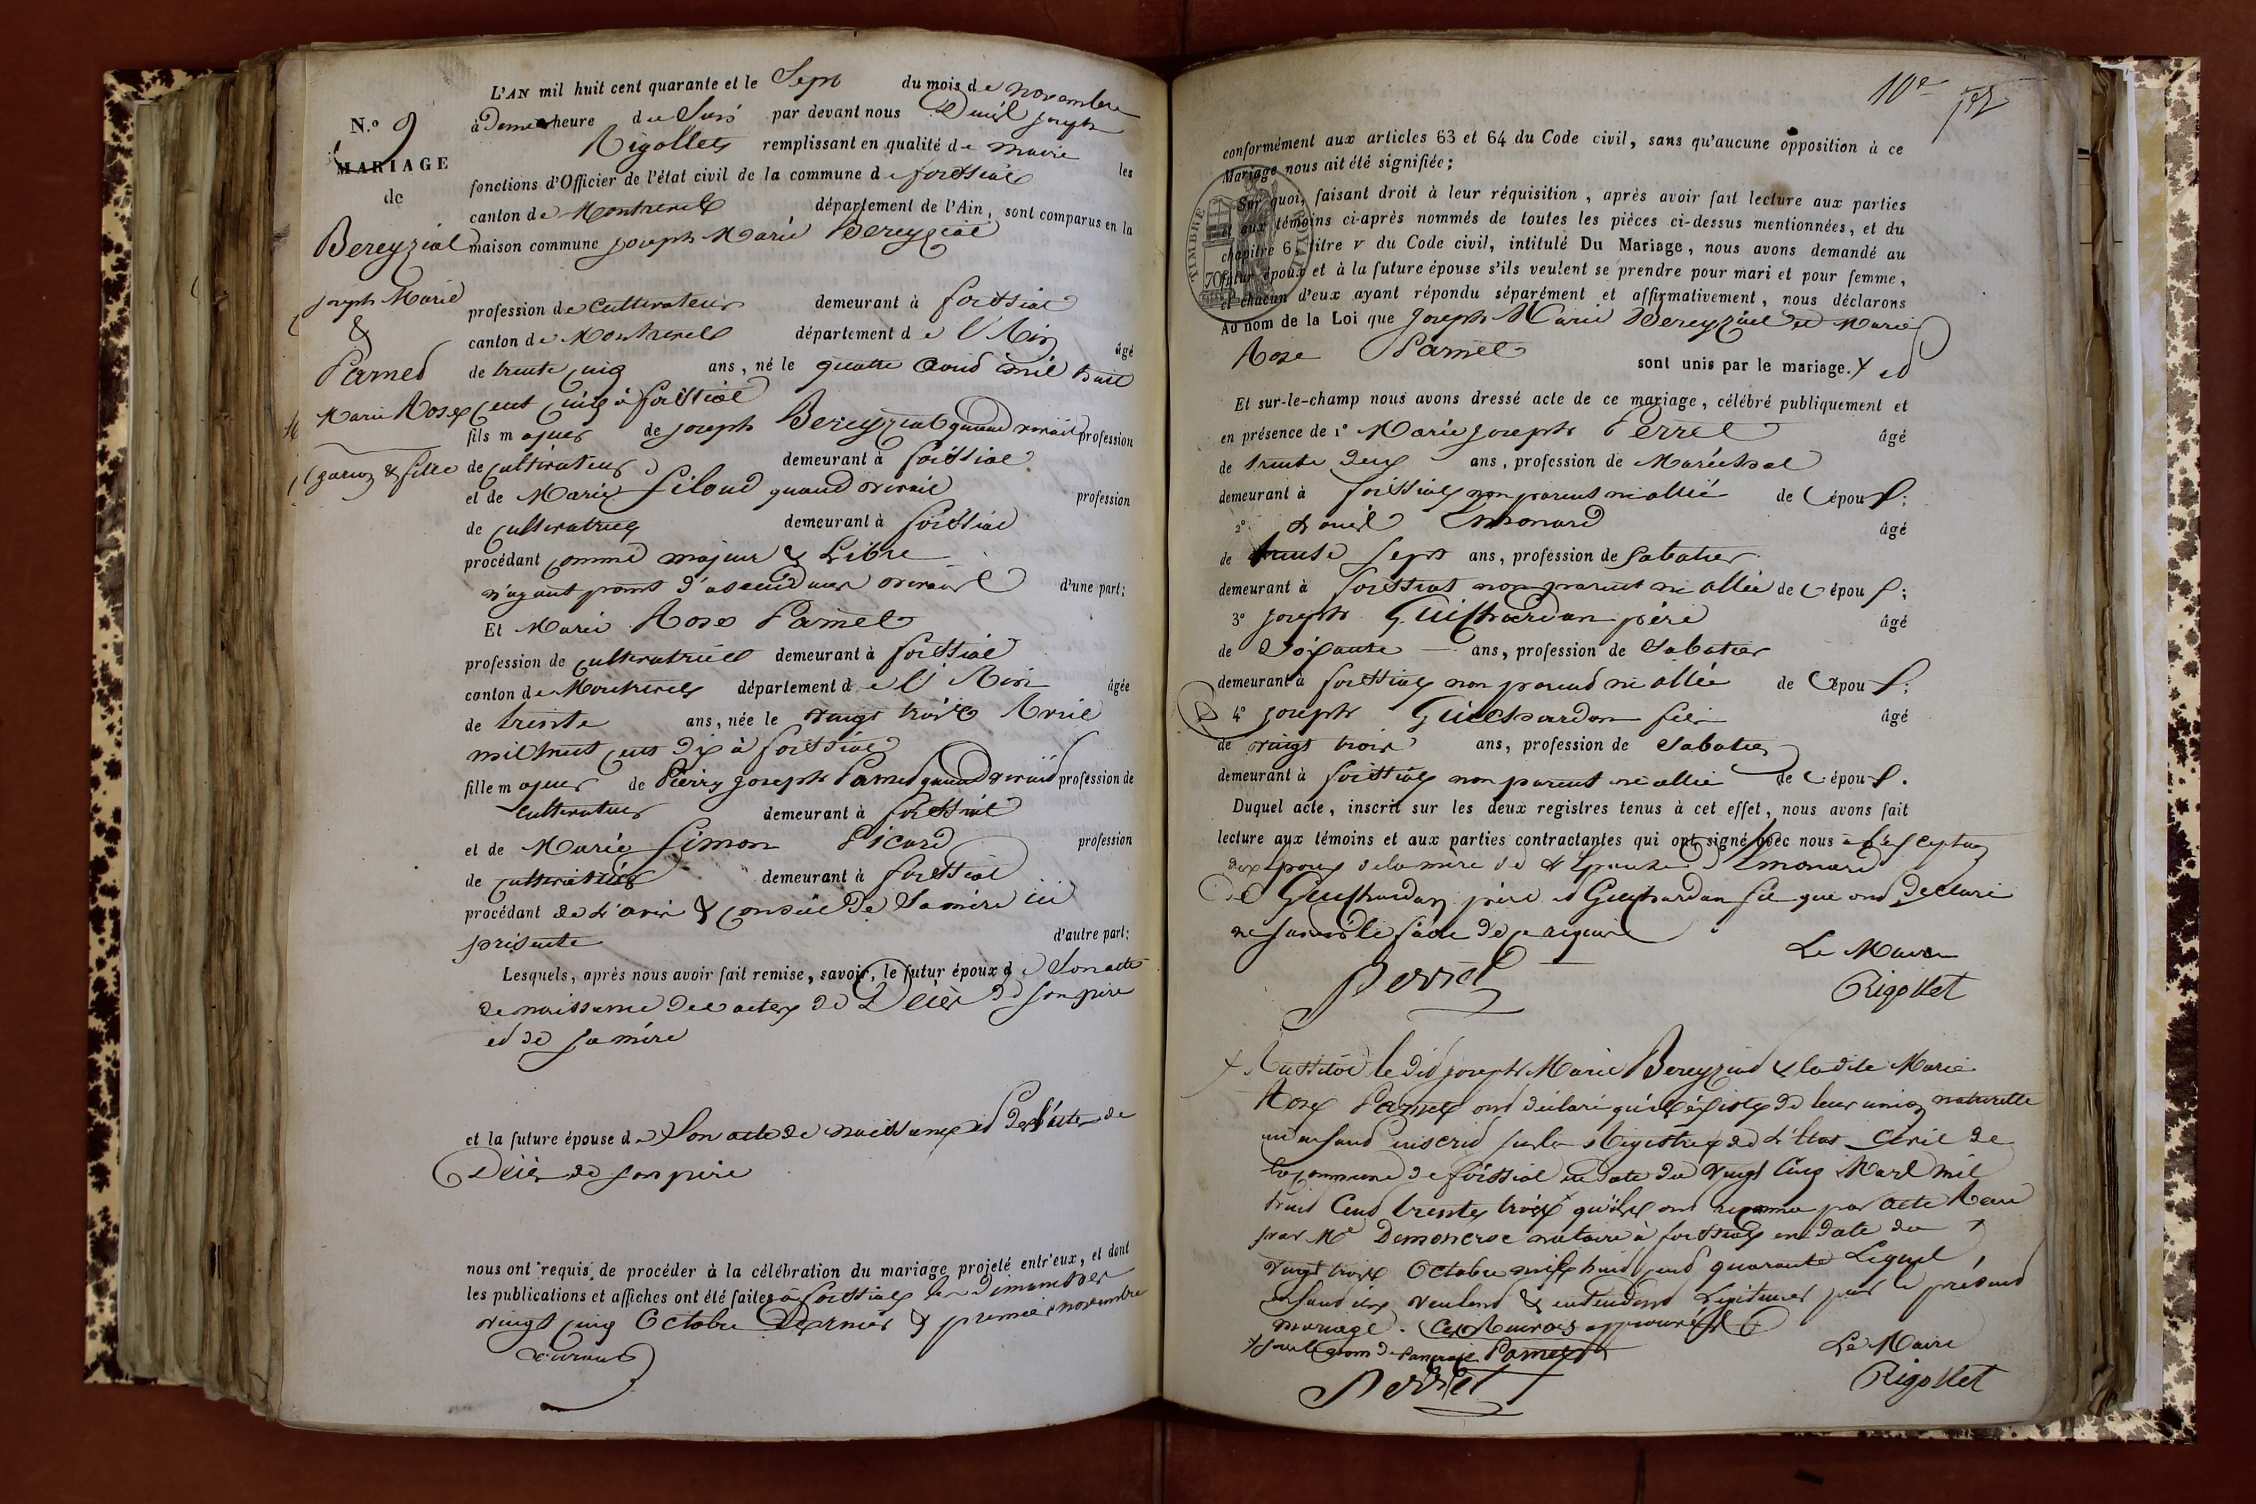 L'AN mil huit cent quarante et le Sept du mois de novembre
à heure du Soir par devant nous Denis joseph
Rigollet remplissant en qualité de maire les
fonctions d'Officier de l'état civil de la commune de foissiat
canton de Montrevel département de l'Ain, sont comparus en la
maison commune joseph Marie Bereyziat
N.º 9
MARIAGE
de
Bereyziat
joseph Marie
&
Parnet
Marie Rose
garçon & fille
profession de Cultivateur demeurant à foissiat
canton de Montrevel département de l'Ain âgé
de trente cinq ans, né le quatre Aoud mil huit
Cent Cinq à foissiat
fils majeur de joseph Bereyziat quand vivait profession
de Cultivateur demeurant à foissiat
et de Marie quand vivait profession
de Cultivatrice demeurant à foissiat
procédant comme majeur & Libre
n'ayant point d'asendant vivant d'une part;
Et Marie Rose Parnet
profession de cultivatrice demeurant à foissiat
canton de Montrevel département de l'Ain âgée
de trente ans, née le vingt trois Avril
mil huit cent dix à foissiat
fille majeur de Pierre joseph Parnet quand vivait profession de
Cultivateur demeurant à foissiat
et de Marie Simon Picard profession
de cultivatrice demeurant à foissiat
procédant de L'avis & consent de Sa mère ici
présente d'autre part;
Lesquels, après nous avoir fait remise, savoir, le futur époux de Son acte
de naissance des actes de Décès de son père
et de sa mère
et la future épouse de Son acte de naissance et de l'acte de
Décès de son père
nous ont requis de procéder à la célébration du mariage projeté entr'eux, et dont
les publications et affiches ont été faites à foissiat les dimanches
vingt cinq Octobre Dernier & premier novembre
Courant
10e
conformément aux articles 63 et 64 du Code civil, sans qu'aucune opposition à ce
Mariage nous ait été signifiée;
Sur quoi, faisant droit à leur réquisition, après avoir fait lecture aux parties
et aux témoins ci-après nommés de toutes les pièces ci-dessus mentionnées, et du
chapitre 6, titre v du Code civil, intitulé Du Mariage, nous avons demandé au
futur époux et à la future épouse s'ils veulent se prendre pour mari et pour femme,
et chacun d'eux ayant répondu séparément et affirmativement, nous déclarons
Au nom de la Loi que Joseph Marie Bereyziat et Marie
Rose Parnet sont unis par le mariage. X
TIMBRE ROYAL
70
Et sur-le-champ nous avons dressé acte de ce mariage, célébré publiquement et
en présence de 1º Marie joseph Perret âgé
de trente deux ans, profession de Maréchal
demeurant à foissiat non parent ni allié de l'époux;
2º Denis Emonard âgé
de trente sept ans, profession de Sabatier
demeurant à foissiat non parent ni allié de l'époux;
3º joseph Guichardan père âgé
de Soixante ans, profession de Sabatier
demeurant à foissiat non parend ni allié de l'époux;
4º joseph Guichardon fils âgé
de vingt trois ans, profession de Sabatier
demeurant à foissiat non parent ni allié de l'époux.
Duquel acte, inscrit sur les deux registres tenus à cet effet, nous avons fait
lecture aux témoins et aux parties contractantes qui ont signé avec nous à l'exception
des époux de la mère de l'épouse Emonard
et Guichardan père et Guichardan fils que ont Declaré
ne savoir le faire de ce requis
Le Maire
Perret
Rigollet
X Aussitôt le dit joseph Marie Bereyziat & la dite Marie
Rose Parnet ont déclaré qu'il éxiste de leur union naturelle
un enfand inscrid sur les Régistres de L'Etat Civil de
la commune de foissiat en date du vingt Cinq Mars mil
huit Cent trente trois qu'ils ont reconnu par acte Reçu
par Me Demoncroc notaire à foissiat en date du
vingt trois Octobre mil huit cent quarante Lequel
enfand ils veulent & entendent Légitimer par le présend
mariage. Ces Renvois approuvés
X sous le nom de Parnet
Le Maire
Perret
Rigollet